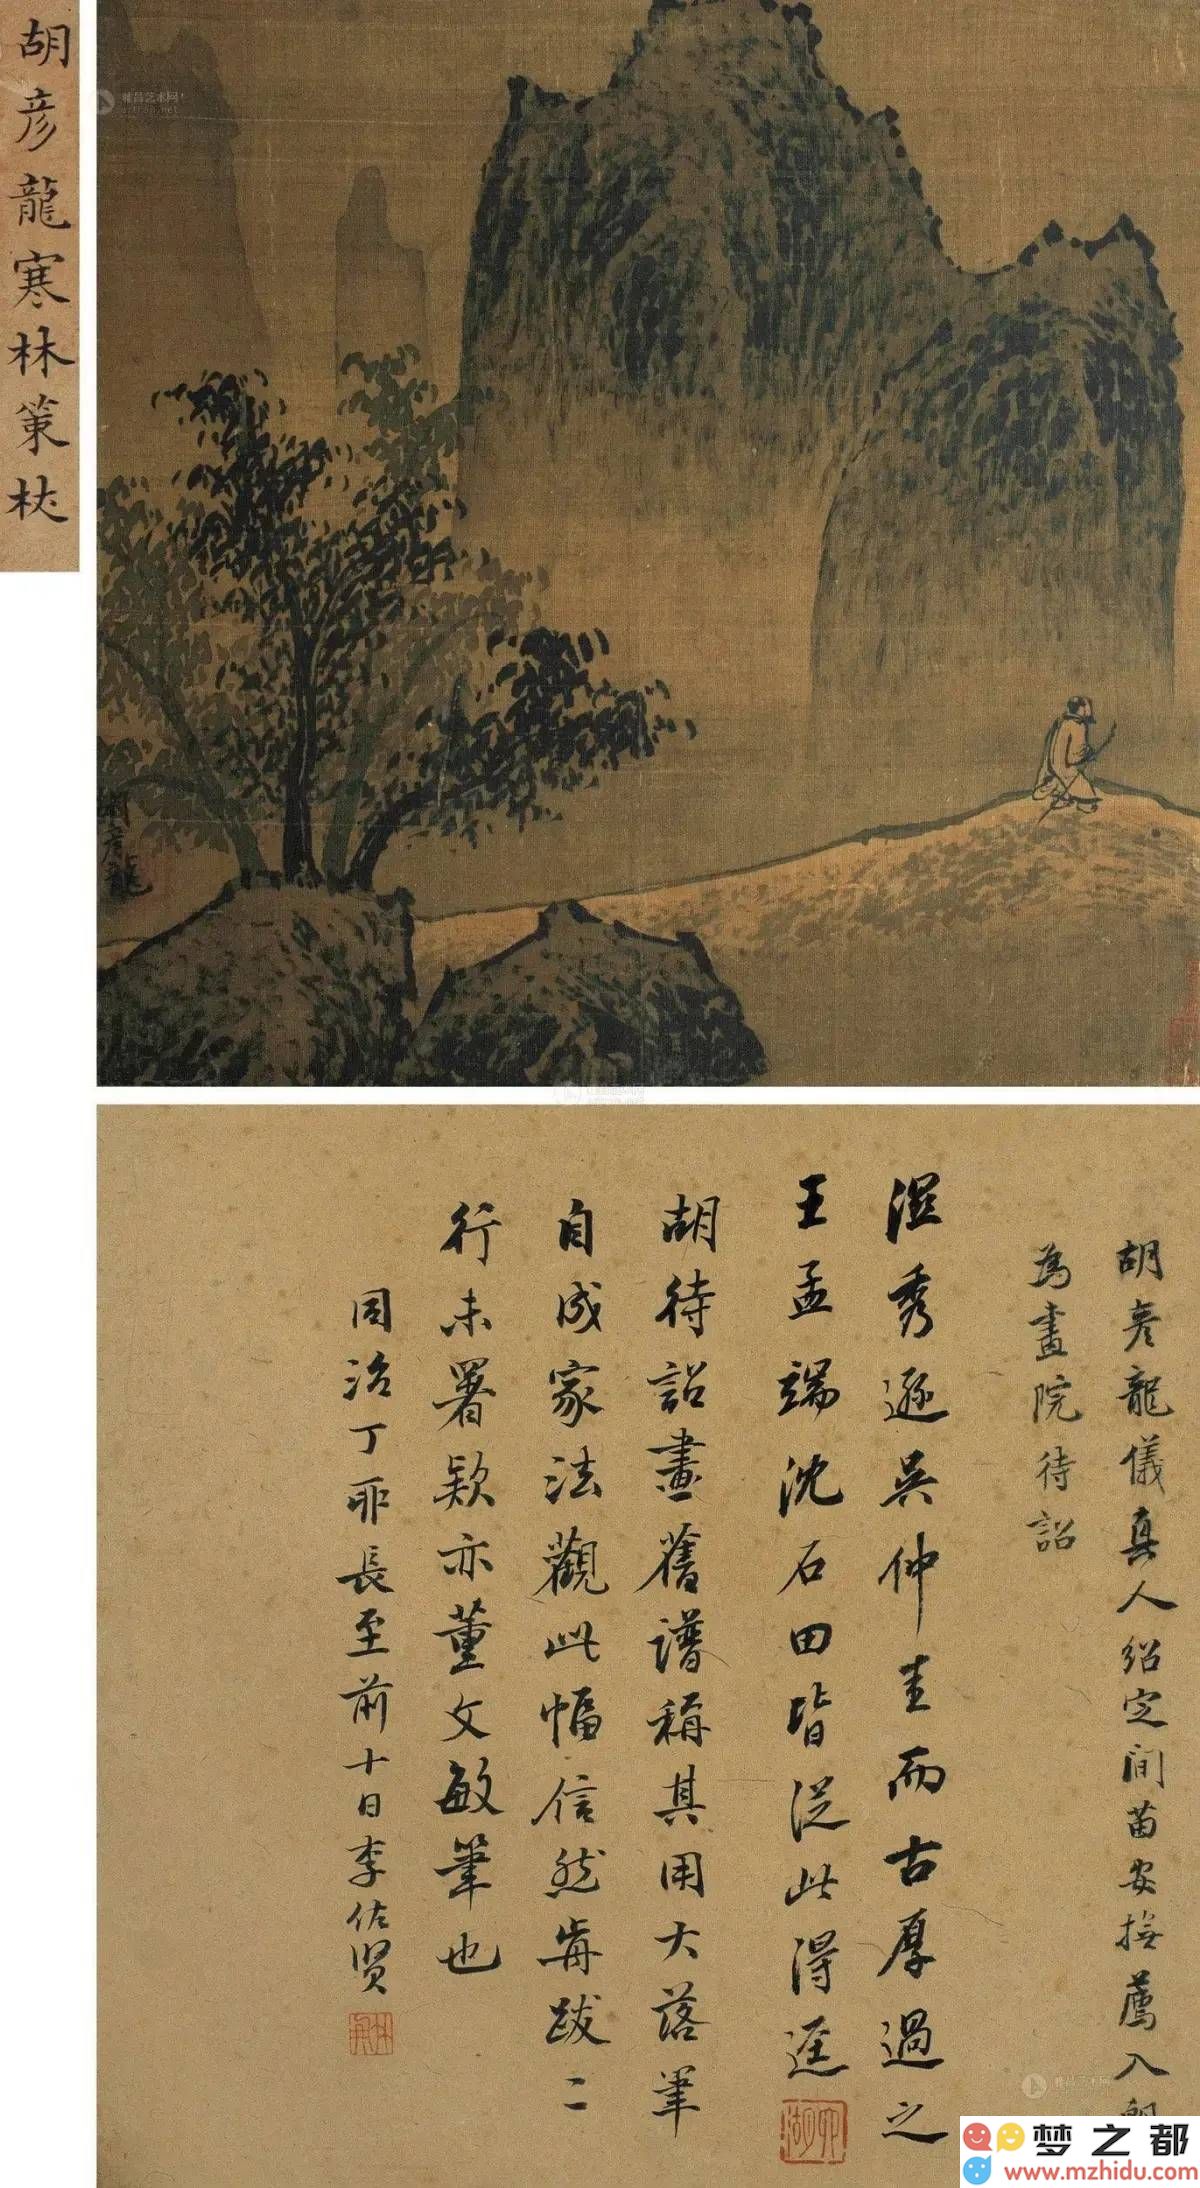 胡彥龍寒林策杖
胡彥龍
胡彥龍儀真人紹定間苗安撫薦入
為畫院待詔
溼秀遜吳仲圭而古厚過之
王孟端沈石田皆從此得逕
胡待詔畫舊譜稱其用大落筆
自成家法觀此幅信然前跋二
行未署款亦董文敏筆也
同治丁卯長至前十日李佐賢
雅昌艺术网
梦之都
www.mzhidu.com